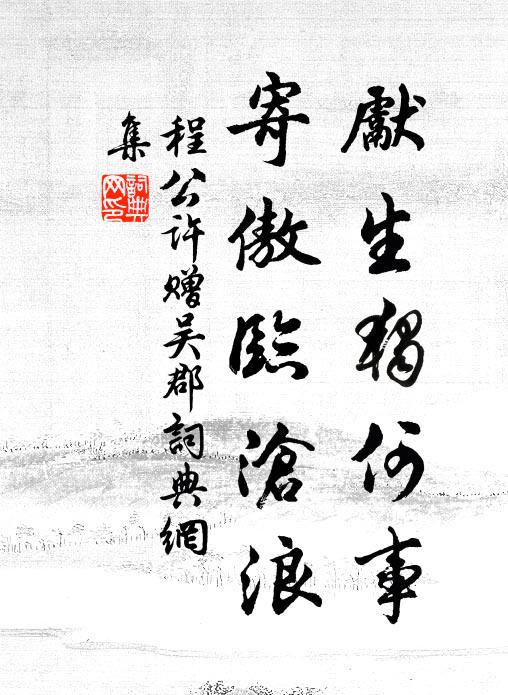 獻生獨何事
寄傲臨滄浪
程公許贈吴郡詞典網
集
詞典
网印